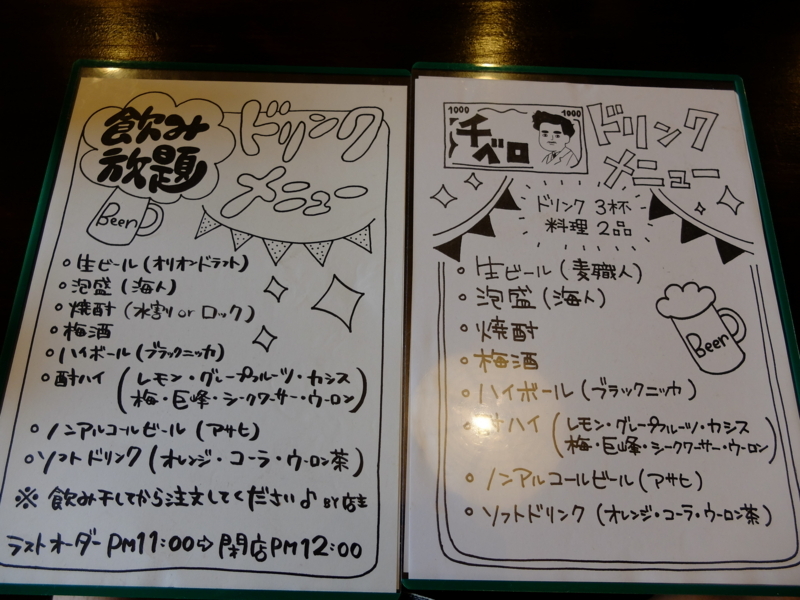 飲み
放題
ドリンク
メニュー
Beer
○生ビール(オリオンドラフト)
○泡盛(海人)
○焼酎(水割り or ロック)
○梅酒
○ハイボール(ブラックニッカ)
○酎ハイ(レモン・グレープフルーツ・カシス
梅・巨峰・シークワーサー・ウーロン)
○ノンアルコールビール(アサヒ)
○ソフトドリンク(オレンジ・コーラ・ウーロン茶)
※飲み干してから注文してください♪ BY店主
ラストオーダーPM11:00⇨閉店PM12:00
1000 1000
千ベロ
ドリンク
メニュー
ドリンク 3杯
料理 2品
○生ビール(麦職人)
○泡盛(海人)
○焼酎
○梅酒
Beer
○ハイボール(ブラックニッカ)
○酎ハイ(レモン・グレープフルーツ・カシス
梅・巨峰・シークワーサー・ウーロン)
○ノンアルコールビール(アサヒ)
○ソフトドリンク(オレンジ・コーラ・ウーロン茶)